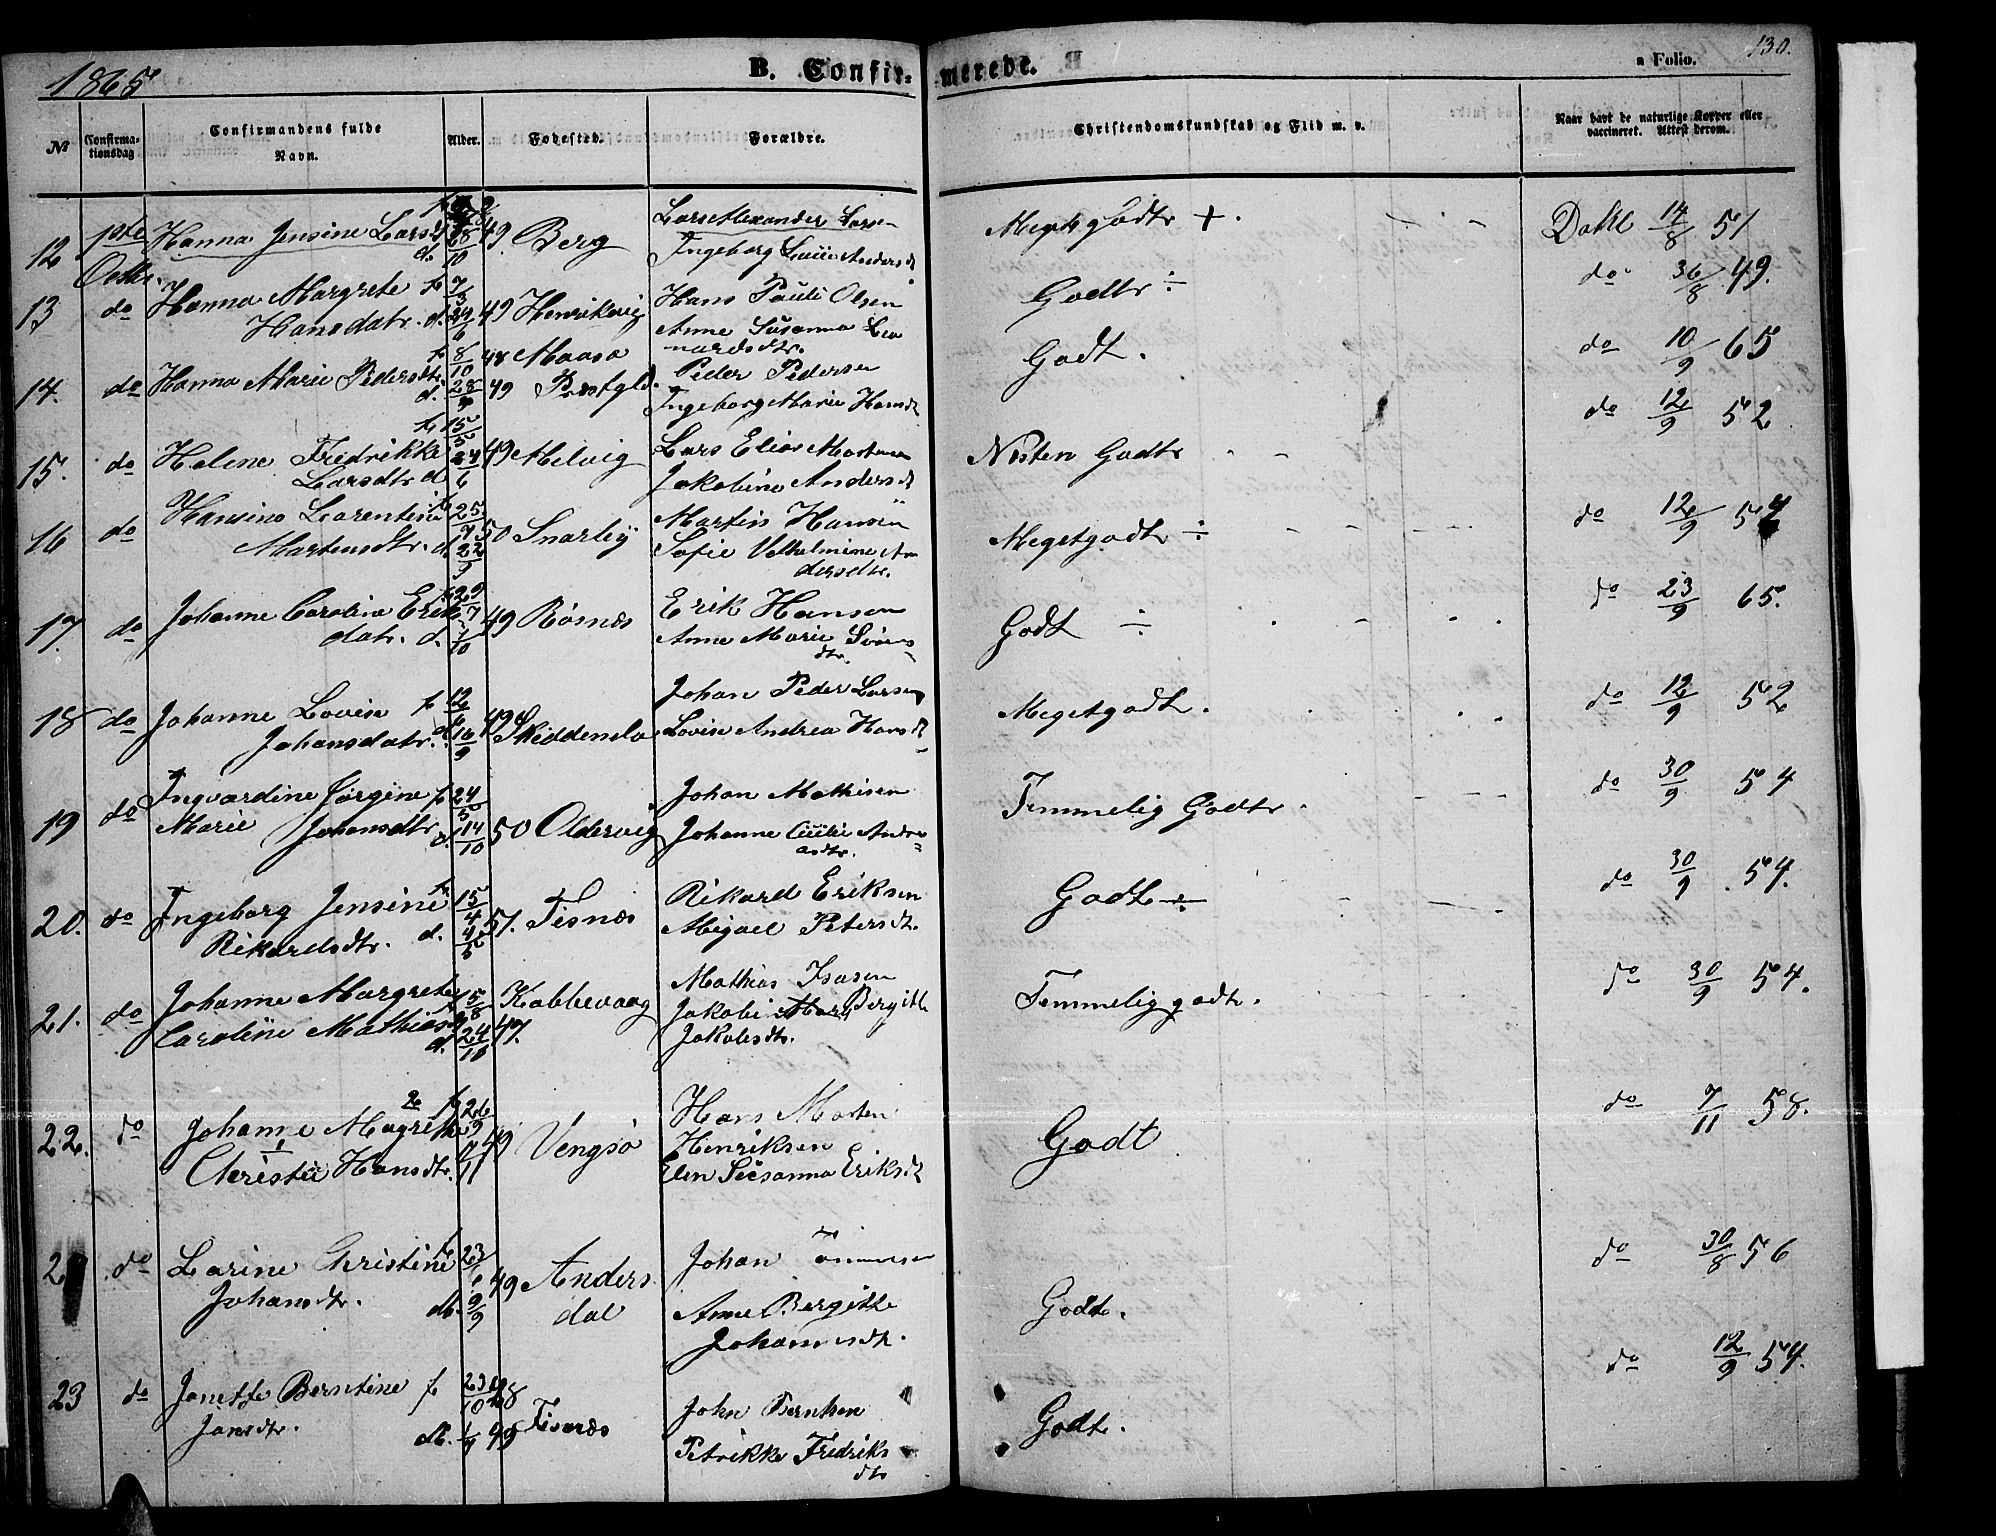 1865
B. Confir-
merede.
a Folio.
130.
№
Confirma-
tionsdag
Confirmandens fulde
Navn.
Alder.
Fødested.
Forældre.
Christendomskundskab og Flid m. v.
Naar havt de naturlige Kopper eller
vaccineret. Attest derom.
12 1ste Octbr. Hanna Jensine Larsd f. d. 28/10 49 Berg
Lars Alexander Larsen
Ingeborg Lucie Andersd
Meget godt + . Dahl 14/8 51
13 do Hanna Margrete f. 7/3
Hansdatr. d. 24/6 49 Henrikvig
Hans Pauli Olsen
Anne Susanna Leo
nardsdtr.
Godt ÷ do 36/8 49.
14. do Hanna Marie Pedersdtr. f. 8/10 48 Maasø
d. 28/9 49 Præstgld.
Peder Pedersen
Ingeborg Marie Hansdt
Godt. do 10/9 65
15. do Helene Fredrikke f. 15/5
Larsdtr d 24/6 49 Melvig
Lars Elias Martens
Jakobine Andersd
Næsten Godt do 12/9 52
16 do Hansine Larentine f. 25/7
Martensdtr. d. 22/9 50 Snarby
Martin Hansen
Sofie Velhelmine An
dersdtr.
Megetgodt ÷ do 12/9 54
17. do Johanne Caroline Erik f. 29/7
datr. d. 7/10 49 Røsnæs
Erik Hansen
Anne Marie Svens-
dtr.
Godt ÷ do 23/9 65.
18 do Johanne Lovise f. 12/6
Johansdatr. d. 16/9 49 Skiddenelv
Johan Peder Larsen
Lovise Andrea Hansdt
Megetgodt. do 12/9 52
19 do Ingvardine Jørgine f. 24/5
Marie Johansdtr. d. 14/10 50 Oldervig
Johan Mathisen
Johanne Cecilie Andre-
asdtr.
Temmelig Godt. do 30/9 54
20. do Ingeborg Jensine f. 15/4
Rikardsdtr. d. 4/5 51. Tisnæs
Rikard Eriksen
Migael Petersdt.
Godt ÷ do 30/9 54.
21. do Johanne Margrete f. 5/8
Caroline Mathiasd d. 24/10 47. Kobbevaag
Mathias Isasen
Jakobi Mari Bergitte
Jakobsdtr.
Temmelig godt. do 30/9 54.
22. do Johanne Magrete f. 26/9
Christie Hansdtr. 7/11 49 Vengsø
Hans Morten
Henriksen
Elen Susanna Eriksdt
Godt do 7/11 58.
2 do Larine Christine f. 23
Johansdtr. d. 9/9 49 Anders
dal
Johan
Anne Bergitte
Johannesdtr.
Godt. do 30/8 56
23 do Janette Berntine f. 23/10 48
Jansdtr. d. 1/4 49 Tisnæs
John Berntsen
Petrikke Fredriks
dtr
Godt. do 12/9 54.